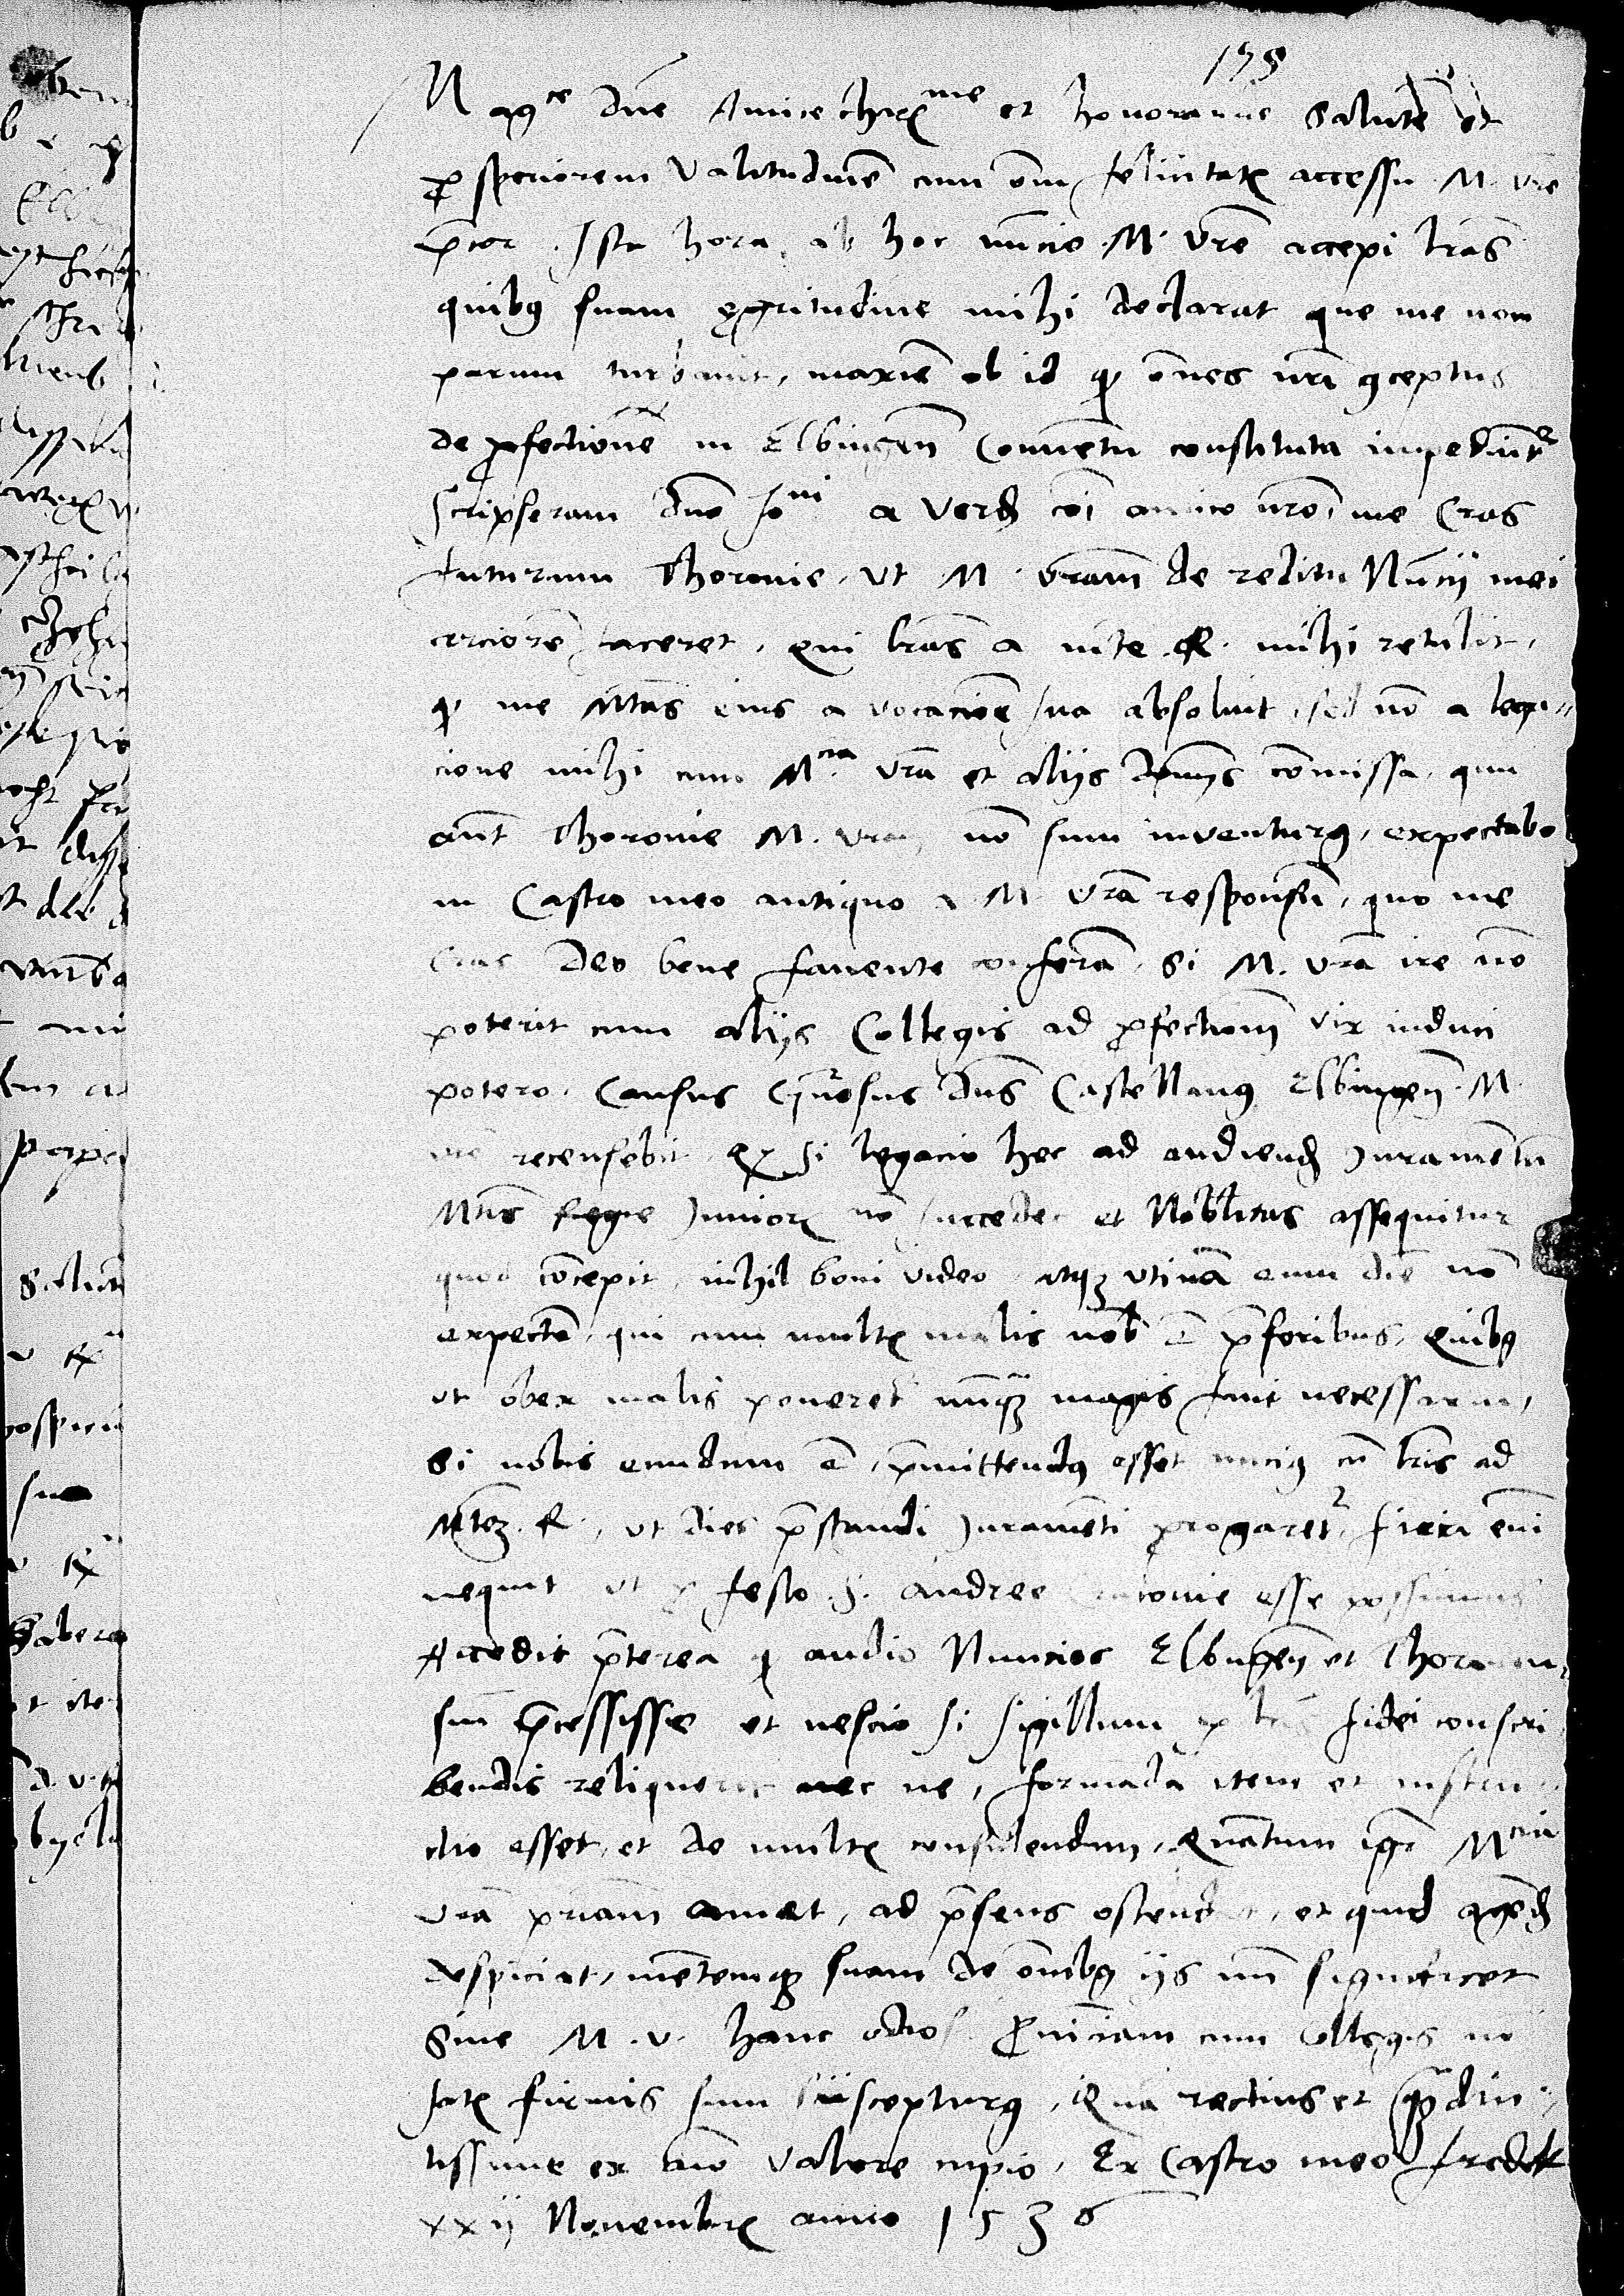 178
Magce dne Amice charme et honorande Salutē et
prosperiorem Valitudinē cum omi felicitate accessu M. vre
pcor. Ista hora ab hoc nuncio M. Vre accepi lras
quibus suam egritudine mihi declarat que me non
parum turbavit, maxie ob id qp omes nri cceptus
de profectione in Elbingen Conuentu constituta impediunt
Scripseram dno Jo a Verd coi amico nro, me Cras
futurum Thoronie, ut M. Vram de reditu Nuncij mei
cerciorē faceret, qui lras a mte R. mihi retulit,
qp me Mtas eius a vocacione sua absoluit, sed nō a lega-
cione mihi cum Mcia Vra et alijs domis comissa, qum
aut Thoronie M. vram nō sum inventurus, expectabo
in Castro meo antiquo a M Vra responsum, quo me
Cras Deo bene favente conferā, Si M. Vra ire nō
poterit cum alijs Collegis ad profectionem vix induci
potero. Causas dns Castellanus Elbingen M.
vre recensebit, Qp si legacio hec ad audiend Juramētum
Mtis Regie Junioris nō succedet et Nobilitas assequitur
quod cōcepit, nihil boni video, atque utinā eum diē nō
expectē, qui cum multis malis nobis ē p foribus, Quibus
ut obex malis poneret nunquam magis fuit necessarium,
Si nobis eundum ē, pmittendus esset nuncius cū lris ad
Mtem R., ut dies pstandi Juramēti progaret, fieri eni
nequit ut p festo S. Andree Cracovie esse possumus
Accedit pterea qp audio Nuncios Elbingen et Thoronien-
sium pcessisse et nescio si sigillum p lris fidei conscri
bendis reliquerit nec ne, formāda item et instru
ctio esset, et de multis consulendum, Quātum igr Mcia
Vra priam amet, ad psens ostendat, et quid agend
despiciat, mētemque suam de omibus ijs mihi significet
Sine M. v. hanc odiosam Provinciam cum Collegis nō
satis firmis sum suscepturus, Quā rectius et
tissime ex aīo Valere cupio, Ex Castro meo
xxij Novembris anno 1536